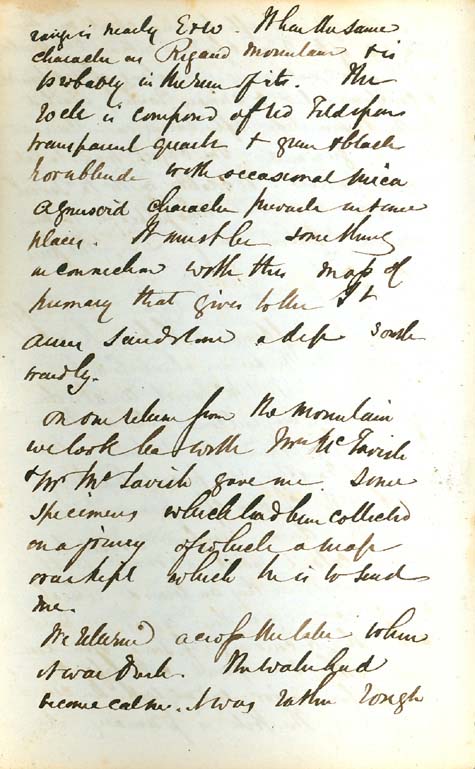 range is nearly E & W. It has the same
character as Rigaud Mountain & is
probably in the run of its. The
rock is composed of red Feldspar
transparent quartz & green & black
hornblende with occasional mica
a gneissoid character prevails in some
places. It must be something
in connection with this mass of
primary that gives to the St
Anns Sandstone a dip south
wardly.
On our return from the Mountain
we took tea with Mrs McTavish
& Mr McTavish gave me some
specimens which had been collected
on a journey of which a map
was kept which he is to send
me.
We returned across the lake when
it was dark. The water had
become calm. It was rather rough